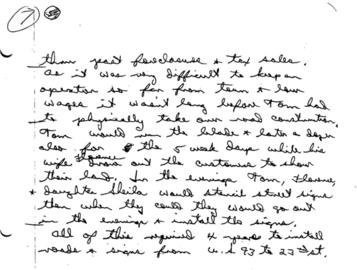 7
than past foreclosure & tax sales.
As it was very difficult to keep an
operator so far from town & low
wages it wasn't long before Tom had
to physically take over road construction.
Tom would run the blade & later a dozer
also for the 5 week days while his
wife Florence drove out the customers to show
their land. In the evenings Tom, Florence,
& daughter Sheila would stencil street signs
then when they could they would go out
in the evenings & install the signs.
All of this required 4 years to install
roads & signs from U.S 93 to 27th st.